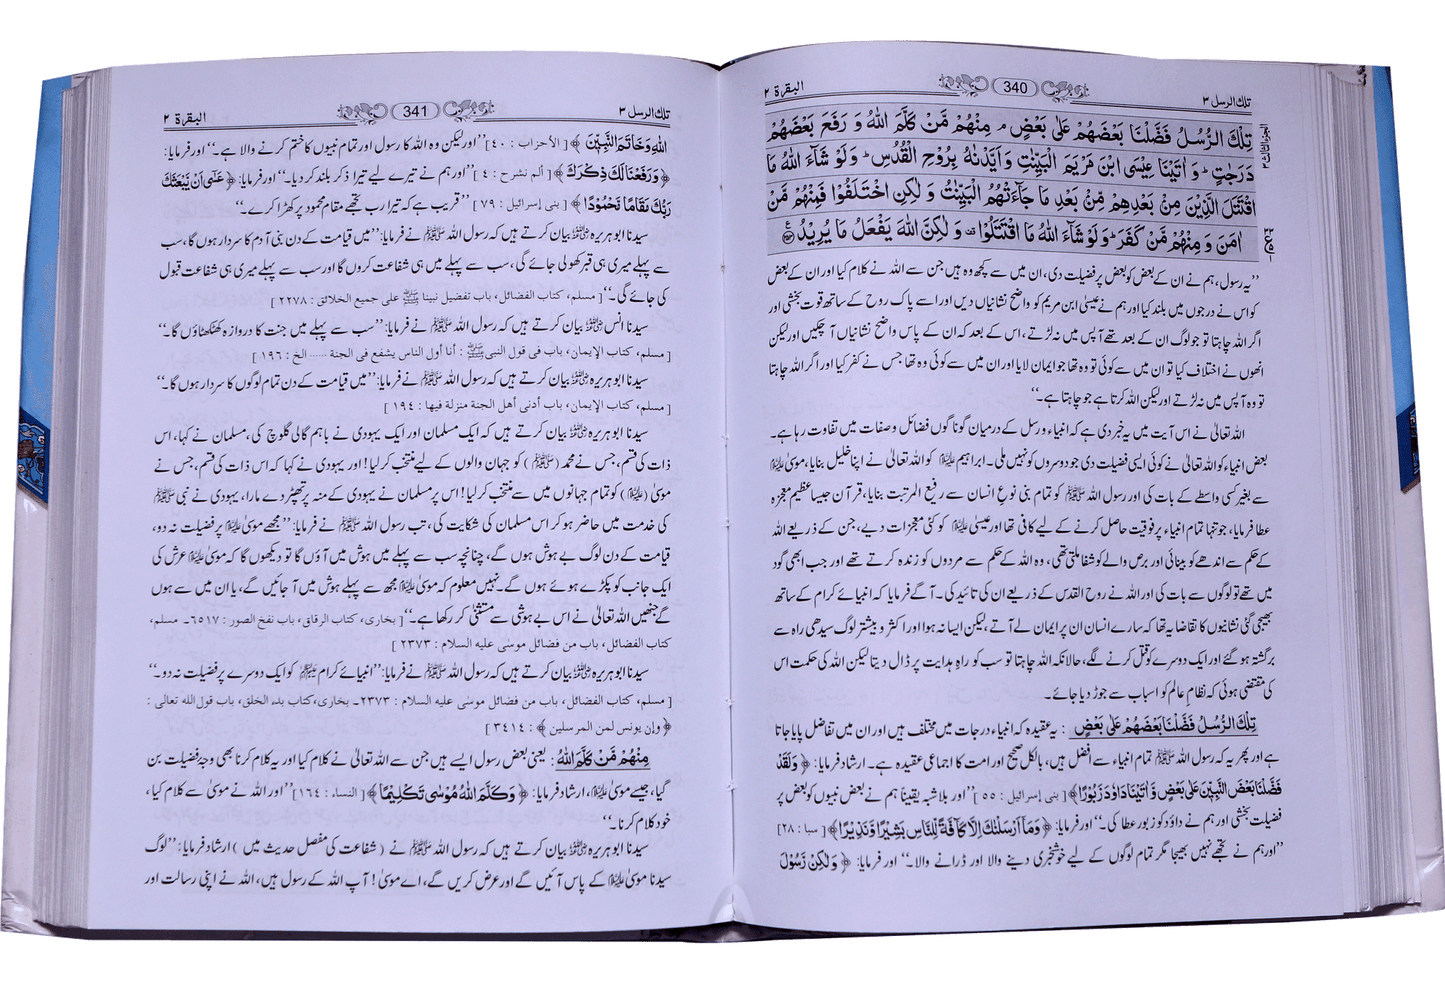 تلك الرسل ٣ 340 البقرة ٢
الجزء الثالث ٣
تِلْكَ الرُّسُلُ فَضَّلْنَا بَعْضَهُمْ عَلٰى بَعْضٍ ۘ مِنْهُمْ مَّنْ كَلَّمَ اللّٰهُ وَ رَفَعَ بَعْضَهُمْ
دَرَجٰتٍ ؕ وَ اٰتَيْنَا عِيْسَى ابْنَ مَرْيَمَ الْبَيِّنٰتِ وَ اَيَّدْنٰهُ بِرُوْحِ الْقُدُسِ ؕ وَ لَوْ شَآءَ اللّٰهُ مَا
اقْتَتَلَ الَّذِيْنَ مِنْۢ بَعْدِهِمْ مِّنْۢ بَعْدِ مَا جَآءَتْهُمُ الْبَيِّنٰتُ وَ لٰكِنِ اخْتَلَفُوْا فَمِنْهُمْ مَّنْ
اٰمَنَ وَ مِنْهُمْ مَّنْ كَفَرَ ؕ وَ لَوْ شَآءَ اللّٰهُ مَا اقْتَتَلُوْا ۫ وَ لٰكِنَّ اللّٰهَ يَفْعَلُ مَا يُرِيْدُ
’’یہ رسول، ہم نے ان کے بعض کو بعض پر فضیلت دی، ان میں سے کچھ وہ ہیں جن سے اللہ نے کلام کیا اور ان کے بعض
کو اس نے درجوں میں بلند کیا اور ہم نے عیسیٰ ابن مریم کو واضح نشانیاں دیں اور اسے پاک روح کے ساتھ قوت بخشی اور
اگر اللہ چاہتا تو جو لوگ ان کے بعد تھے آپس میں نہ لڑتے، اس کے بعد کہ ان کے پاس واضح نشانیاں آ چکیں اور لیکن
انھوں نے اختلاف کیا تو ان میں سے کوئی تو وہ تھا جو ایمان لایا اور ان میں سے کوئی وہ تھا جس نے کفر کیا اور اگر اللہ چاہتا
تو وہ آپس میں نہ لڑتے اور لیکن اللہ کرتا ہے جو چاہتا ہے۔‘‘
اللہ تعالیٰ نے اس آیت میں یہ خبر دی ہے کہ انبیاء و رسل کے درمیان گوناگوں فضائل و صفات میں تفاوت رہا ہے۔
بعض انبیاء کو اللہ تعالیٰ نے کوئی ایسی فضیلت دی جو دوسروں کو نہیں ملی۔ ابراہیم علیہ السلام کو اللہ تعالیٰ نے اپنا خلیل بنایا، موسیٰ علیہ السلام
سے بغیر کسی واسطے کے بات کی اور رسول اللہ ﷺ کو تمام بنی نوع انسان سے رفیع المرتبت بنایا، قرآن جیسا عظیم معجزہ
عطا فرمایا، جو تنہا تمام انبیاء پر فوقیت حاصل کرنے کے لیے کافی تھا اور عیسیٰ علیہ السلام کو کئی معجزات دیے، جن کے ذریعے اللہ
کے حکم سے اندھے کو بینائی اور برص والے کو شفا ملتی تھی، وہ اللہ کے حکم سے مردوں کو زندہ کرتے تھے اور جب ابھی گود
میں تھے تو لوگوں سے بات کی اور اللہ نے روح القدس کے ذریعے ان کی تائید کی۔ آگے فرمایا کہ انبیائے کرام کے ساتھ
بھیجی گئی نشانیوں کا تقاضا یہ تھا کہ سارے انسان ان پر ایمان لے آتے، لیکن ایسا نہ ہوا اور اکثر و بیشتر لوگ سیدھی راہ سے
برگشتہ ہو گئے اور ایک دوسرے کو قتل کرنے لگے، حالانکہ اللہ چاہتا تو سب کو راہِ ہدایت پر ڈال دیتا لیکن اللہ کی حکمت اس
کی مقتضی ہوئی کہ نظام عالم کو اسباب سے جوڑ دیا جائے۔
تِلْكَ الرُّسُلُ فَضَّلْنَا بَعْضَهُمْ عَلٰى بَعْضٍ : یہ عقیدہ کہ انبیاء درجات میں مختلف ہیں اور ان میں تفاضل پایا جاتا
ہے اور پھر یہ کہ رسول اللہ ﷺ تمام انبیاء سے افضل ہیں، بالکل صحیح اور امت کا اجماعی عقیدہ ہے۔ ارشاد فرمایا: ﴿ وَ لَقَدْ
فَضَّلْنَا بَعْضَ النَّبِيّٖنَ عَلٰى بَعْضٍ وَّ اٰتَيْنَا دَاوٗدَ زَبُوْرًا ﴾ [ بنی إسرائیل : ٥٥ ] ’’اور بلاشبہ یقیناً ہم نے بعض نبیوں کو بعض پر
فضیلت بخشی اور ہم نے داؤد کو زبور عطا کی۔‘‘ اور فرمایا: ﴿ وَ مَاۤ اَرْسَلْنٰكَ اِلَّا كَآفَّةً لِّلنَّاسِ بَشِيْرًا وَّ نَذِيْرًا ﴾ [ سبا : ٢٨ ]
’’اور ہم نے تجھے نہیں بھیجا مگر تمام لوگوں کے لیے خوشخبری دینے والا اور ڈرانے والا۔‘‘ اور فرمایا: ﴿ وَ لٰكِنْ رَّسُوْلَ
تلك الرسل ٣ 341 البقرة ٢
اللّٰهِ وَ خَاتَمَ النَّبِيّٖنَ ﴾ [ الأحزاب : ٤٠ ] ’’اور لیکن وہ اللہ کا رسول اور تمام نبیوں کا ختم کرنے والا ہے۔‘‘ اور فرمایا:
﴿ وَ رَفَعْنَا لَكَ ذِكْرَكَ ﴾ [ ألم نشرح : ٤ ] ’’اور ہم نے تیرے لیے تیرا ذکر بلند کر دیا۔‘‘ اور فرمایا: ﴿ عَسٰۤى اَنْ يَّبْعَثَكَ
رَبُّكَ مَقَامًا مَّحْمُوْدًا ﴾ [ بنی إسرائیل : ٧٩ ] ’’قریب ہے کہ تیرا رب تجھے مقام محمود پر کھڑا کرے۔‘‘
سیدنا ابو ہریرہ رضی اللہ عنہ بیان کرتے ہیں کہ رسول اللہ ﷺ نے فرمایا: ’’میں قیامت کے دن بنی آدم کا سردار ہوں گا، سب
سے پہلے میری ہی قبر کھولی جائے گی، سب سے پہلے میں ہی شفاعت کروں گا اور سب سے پہلے میری ہی شفاعت قبول
کی جائے گی۔‘‘ [ مسلم، کتاب الفضائل، باب تفضیل نبینا ﷺ علی جمیع الخلائق : ٢٢٧٨ ]
سیدنا انس رضی اللہ عنہ بیان کرتے ہیں کہ رسول اللہ ﷺ نے فرمایا: ’’سب سے پہلے میں جنت کا دروازہ کھٹکھٹاؤں گا۔‘‘
[ مسلم، کتاب الإیمان، باب فی قول النبی ﷺ : أنا أول الناس یشفع فی الجنة ..... الخ : ١٩٦ ]
سیدنا ابو ہریرہ رضی اللہ عنہ بیان کرتے ہیں کہ رسول اللہ ﷺ نے فرمایا: ’’میں قیامت کے دن تمام لوگوں کا سردار ہوں گا۔‘‘
[ مسلم، کتاب الإیمان، باب أدنی أهل الجنة منزلة فیها : ١٩٤ ]
سیدنا ابو ہریرہ رضی اللہ عنہ بیان کرتے ہیں کہ ایک مسلمان اور ایک یہودی نے باہم گالی گلوچ کی، مسلمان نے کہا، اس
ذات کی قسم، جس نے محمد (ﷺ) کو جہان والوں کے لیے منتخب کر لیا! اور یہودی نے کہا کہ اس ذات کی قسم، جس نے
موسیٰ (علیہ السلام) کو تمام جہانوں میں سے منتخب کر لیا! اس پر مسلمان نے یہودی کے منہ پر تھپڑ دے مارا، یہودی نے نبی ﷺ
کی خدمت میں حاضر ہو کر اس مسلمان کی شکایت کی، تب رسول اللہ ﷺ نے فرمایا: ’’مجھے موسیٰ علیہ السلام پر فضیلت نہ دو،
قیامت کے دن لوگ بے ہوش ہوں گے، چنانچہ سب سے پہلے میں ہوش میں آؤں گا تو دیکھوں گا کہ موسیٰ علیہ السلام عرش کی
ایک جانب کو پکڑے ہوئے ہوں گے۔ نہیں معلوم کہ موسیٰ علیہ السلام مجھ سے پہلے ہوش میں آ جائیں گے، یا ان میں سے ہوں
گے جنھیں اللہ تعالیٰ نے اس بے ہوشی سے مستثنیٰ کر رکھا ہے۔‘‘ [ بخاری، کتاب الرقاق، باب نفخ الصور : ٦٥١٧۔ مسلم،
کتاب الفضائل، باب من فضائل موسی علیه السلام : ٢٣٧٣ ]
سیدنا ابو ہریرہ رضی اللہ عنہ بیان کرتے ہیں کہ رسول اللہ ﷺ نے فرمایا: ’’انبیائے کرام علیہم السلام کو ایک دوسرے پر فضیلت نہ دو۔‘‘
[ مسلم، کتاب الفضائل، باب من فضائل موسی علیه السلام : ٢٣٧٣۔ بخاری، کتاب بدء الخلق، باب قول الله تعالی :
﴿ وإن یونس لمن المرسلین ﴾ : ٣٤١٤ ]
مِنْهُمْ مَّنْ كَلَّمَ اللّٰهُ : یعنی بعض رسول ایسے ہیں جن سے اللہ تعالیٰ نے کلام کیا اور یہ کلام کرنا بھی وجۂ فضیلت بن
گیا، جیسے موسیٰ علیہ السلام، ارشاد فرمایا: ﴿ وَ كَلَّمَ اللّٰهُ مُوْسٰى تَكْلِيْمًا ﴾ [ النساء : ١٦٤ ] ’’اور اللہ نے موسیٰ سے کلام کیا،
خود کلام کرنا۔‘‘
سیدنا ابو ہریرہ رضی اللہ عنہ بیان کرتے ہیں کہ رسول اللہ ﷺ نے ( شفاعت کی مفصل حدیث میں ) ارشاد فرمایا: ’’لوگ
سیدنا موسیٰ علیہ السلام کے پاس آئیں گے اور عرض کریں گے، اے موسیٰ! آپ اللہ کے رسول ہیں، اللہ نے اپنی رسالت اور